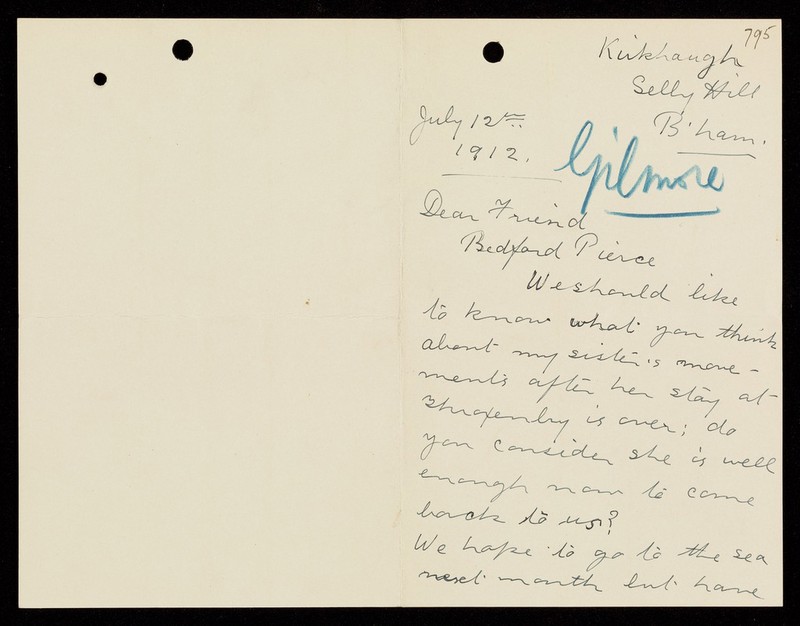 795
Kirkhaugh
Selly Hill
B'ham.
July 12th
1912.
Gilmore
Dear Friend
Bedford Pierce
We should like
to know what you think
about my sister's move-
ments after her stay at
Throxenby is over; do
you consider she is well
enough now to come
back to us?
We hope to go to the sea
next month but have